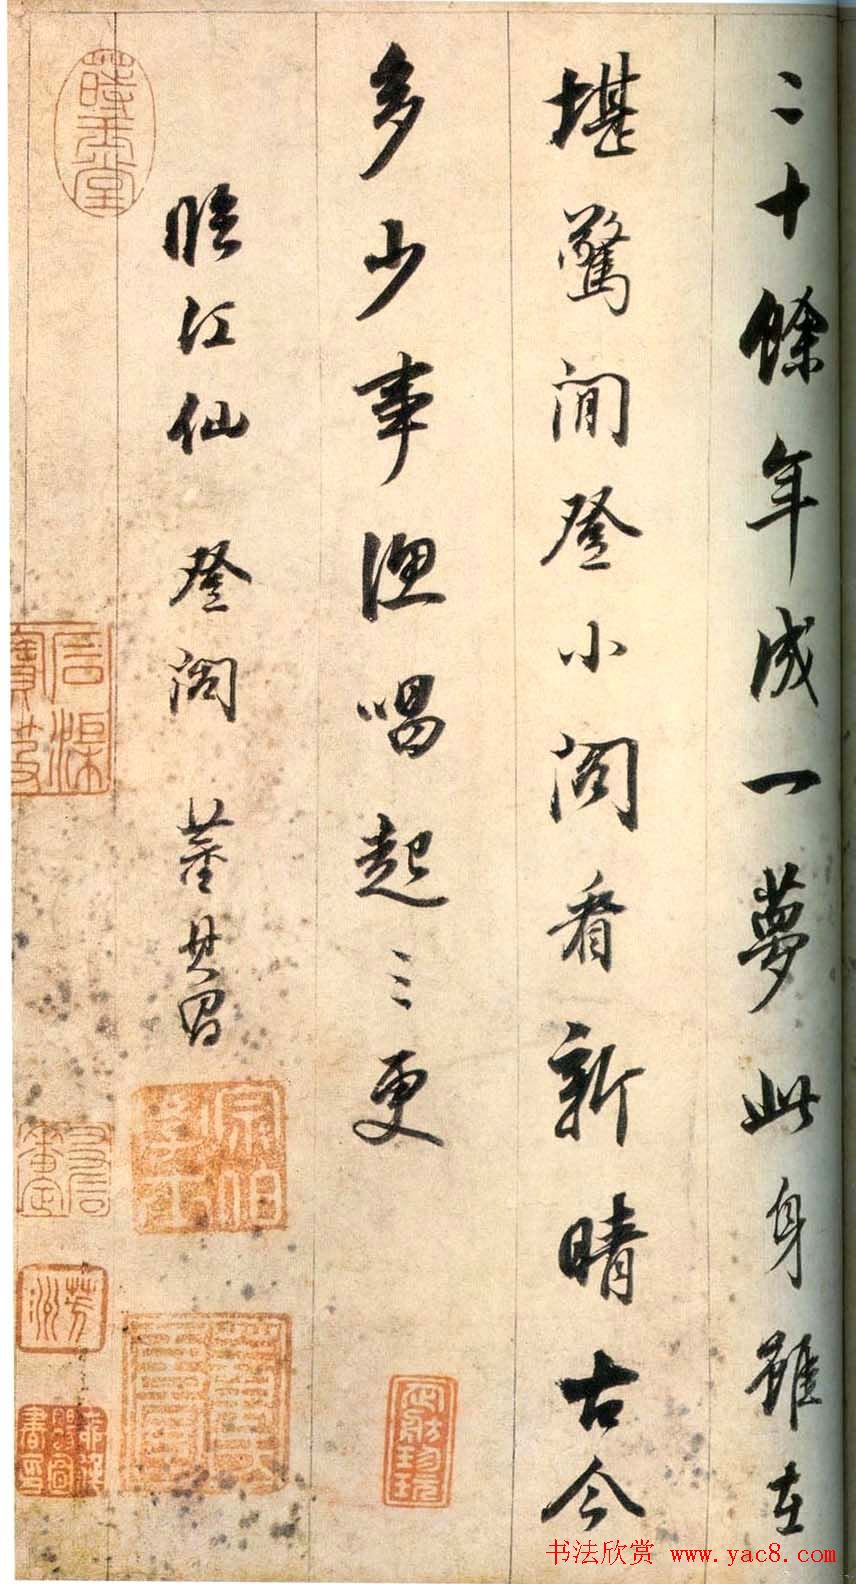 二十餘年成一夢此身雖在
堪驚閒登小閣看新晴古今
多少事漁唱起三更
臨江仙 登閣 董其昌
書法欣赏 www.yac8.com